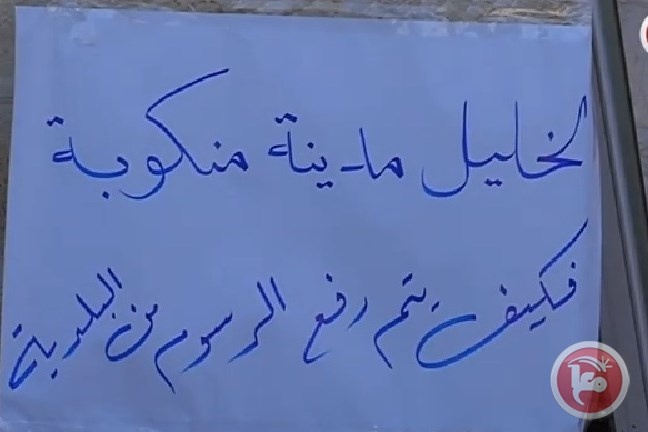 الخليل مدينة منكوبة
فكيف يتم رفع الرسوم من البلدية